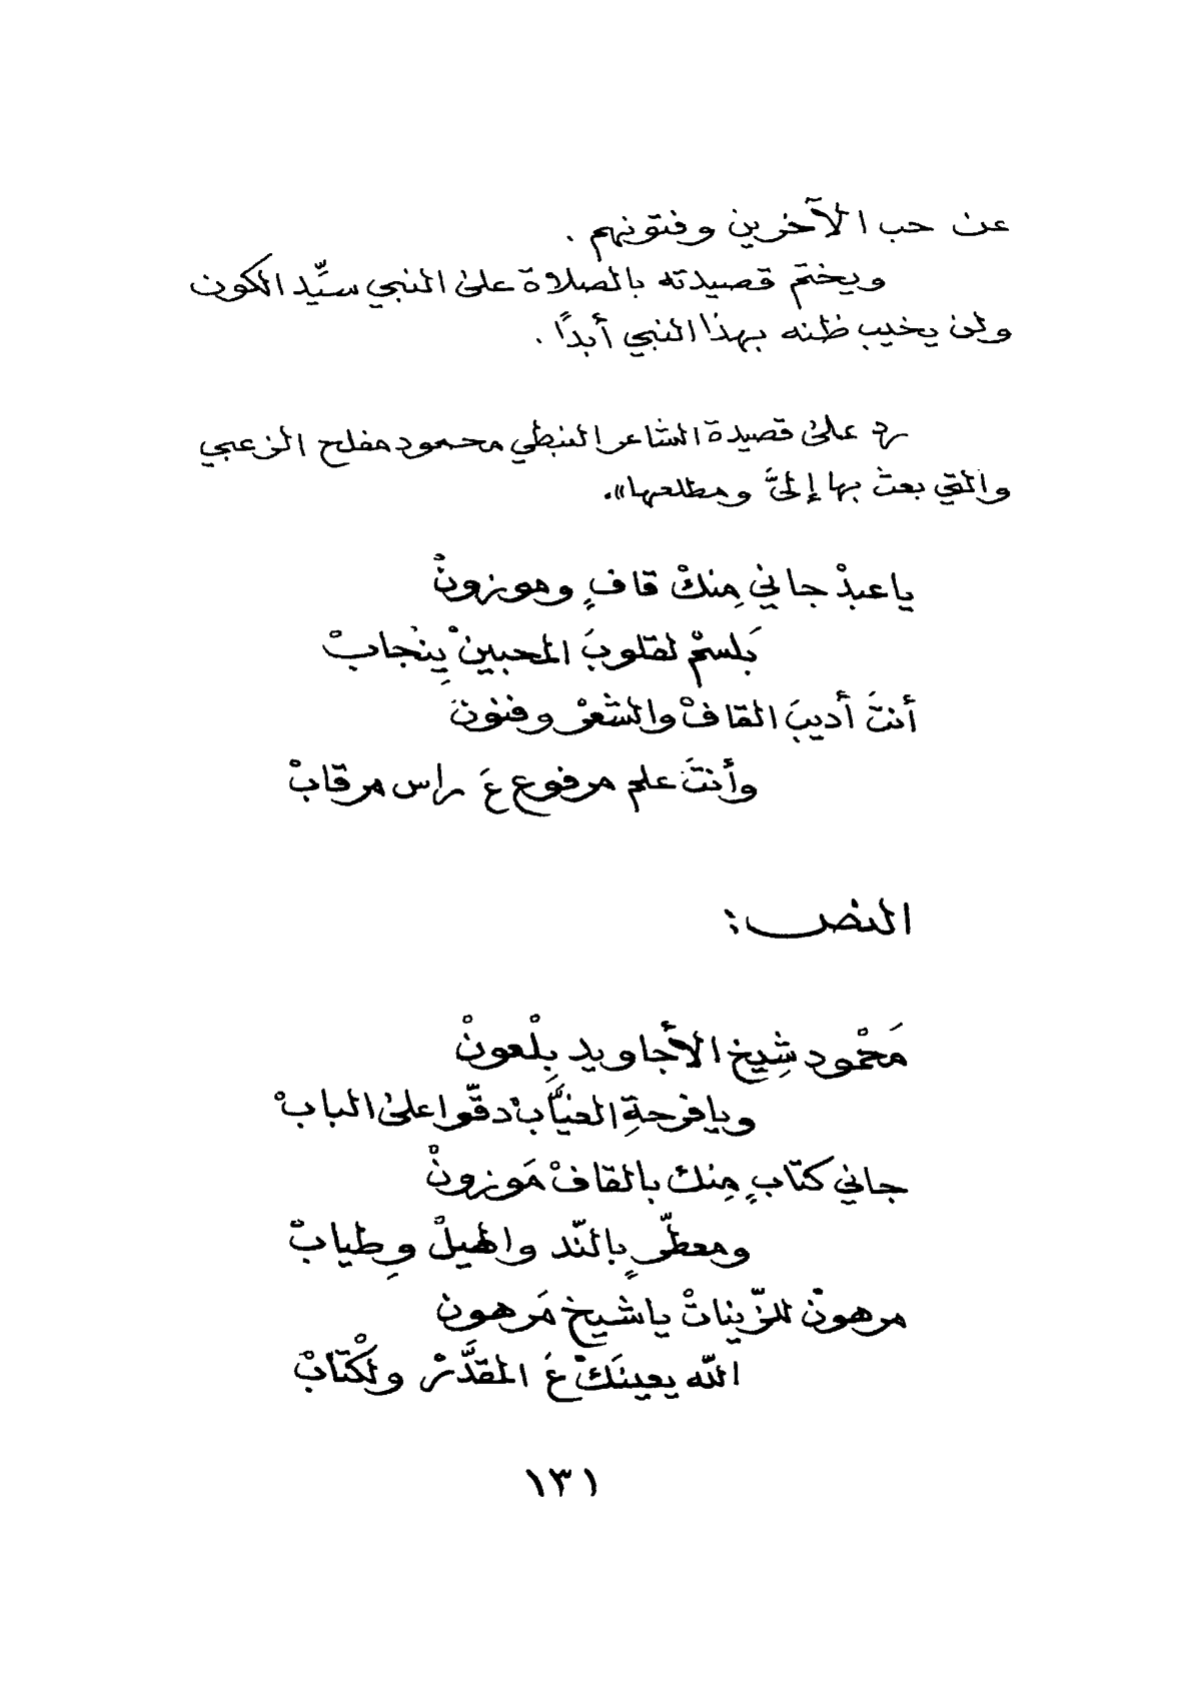 عن حب الآخرين وفتونهم .
ويختم قصيدته بالصلاة على النبي سيِّد الكون
ولن يخيب ظنه بهذا النبي أبدًا .
رد على قصيدة الشاعر النبطي محمود مفلح الزعبي
والتي بعث بها إليَّ ومطلعها)).
يا عبدْ جاني مِنكْ قافٍ وموزونْ
بَلسمْ لقلوبَ المحبينْ يِنْجابْ
أنتَ أديبَ القافْ والشعرْ وفنونَ
وأنتَ علم مرفوع عَ راس مرقابْ
النص:
مَحْمود شِيخ الأجاويد بِلْعونْ
ويا فرحةِ الغيَّابْ دقّوا على البابْ
جاني كتابٍ مِنك بالقافْ مَوزونْ
ومعطّرٍ بالنّد والهيلْ وِطيابْ
مرهونْ للزّيناتْ يا شيخ مَرهون
الله يعينَكْ عَ المقدَّرْ ولكْتابْ
١٣١